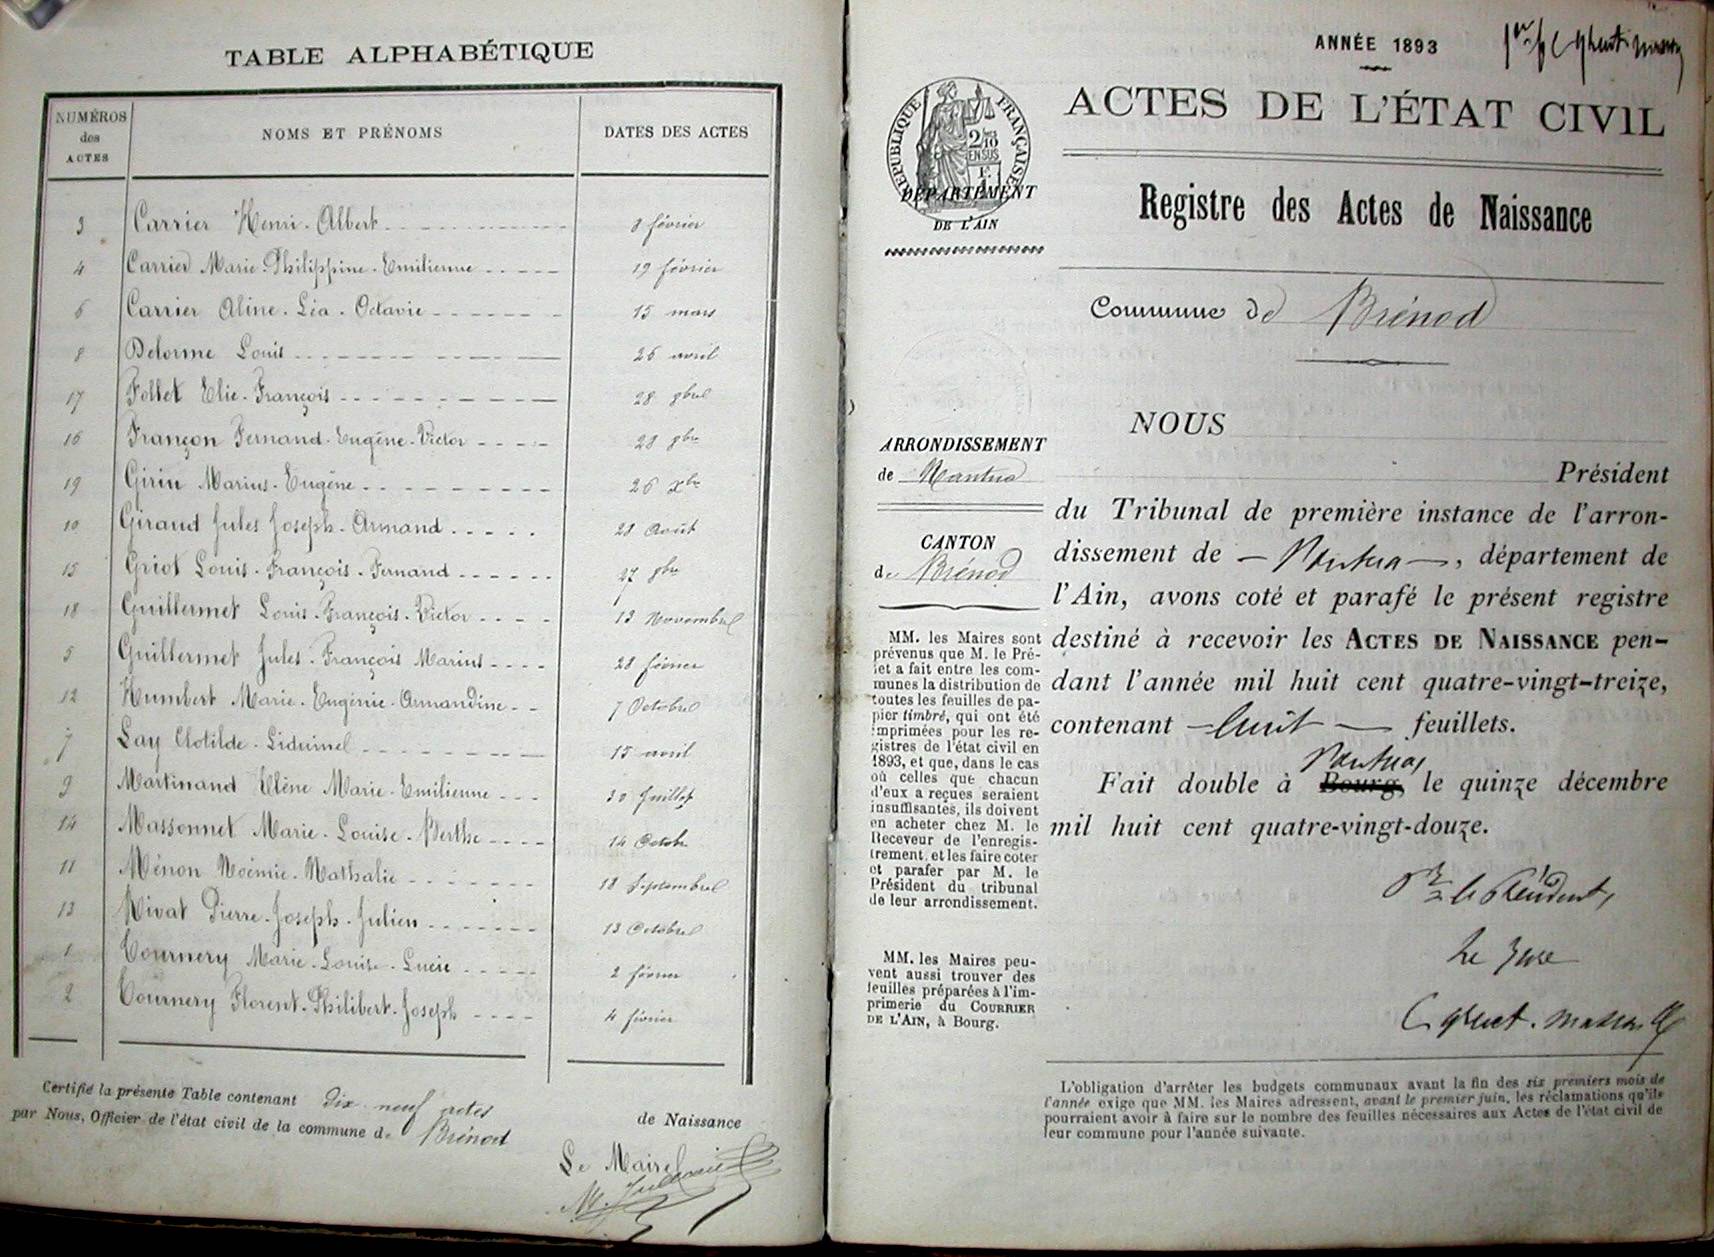 TABLE ALPHABÉTIQUE
NUMÉROS des ACTES
NOMS ET PRÉNOMS
DATES DES ACTES
3 Carrier Henri-Albert 8 février
4 Carrier Marie-Philippine-Emilienne 19 février
6 Carrier Aline-Léa-Octavie 15 mars
8 Delorme Louis 26 avril
17 Follet Elie-François 28 9bre
16 Françon Fernand-Eugène-Victor 28 8bre
19 Girin Marius-Eugène 26 Xbre
10 Giraud Jules Joseph-Armand 28 Août
15 Griot Louis-François-Fernand 27 8bre
18 Guillermet Louis-François-Victor 13 Novembre
5 Guillermet Jules-François Marius 28 février
12 Humbert Marie-Eugénie-Armandine 7 Octobre
7 Lay Clotilde-Liduinel 15 avril
9 Martinand Elène Marie-Emilienne 30 Juillet
14 Massonnet Marie-Louise-Berthe 14 Octobre
11 Ménon Noémie-Nathalie 18 Septembre
13 Nivat Pierre-Joseph-Julien 13 Octobre
1 Tournery Marie-Louise-Lucie 2 février
2 Tournery Florent-Philibert-Joseph 4 février
Certifié la présente Table contenant dix neuf actes de Naissance
par Nous, Officier de l'état civil de la commune de Brénod
Le Maire
ANNÉE 1893
RÉPUBLIQUE FRANÇAISE
2/10 EN SUS
DÉPARTEMENT
DE L'AIN
ACTES DE L'ÉTAT CIVIL
Registre des Actes de Naissance
Commune de Brénod
ARRONDISSEMENT
de Nantua
CANTON
de Brénod
MM. les Maires sont
prévenus que M. le Pré-
fet a fait entre les com-
munes la distribution de
toutes les feuilles de pa-
pier timbré, qui ont été
imprimées pour les re-
gistres de l'état civil en
1893, et que, dans le cas
où celles que chacun
d'eux a reçues seraient
insuffisantes, ils doivent
en acheter chez M. le
Receveur de l'enregis-
trement, et les faire coter
et parafer par M. le
Président du tribunal
de leur arrondissement.
MM. les Maires peu-
vent aussi trouver des
feuilles préparées à l'im-
primerie du COURRIER
DE L'AIN, à Bourg.
NOUS
Président
du Tribunal de première instance de l'arron-
dissement de Nantua, département de
l'Ain, avons coté et parafé le présent registre
destiné à recevoir les ACTES DE NAISSANCE pen-
dant l'année mil huit cent quatre-vingt-treize,
contenant huit feuillets.
Nantua
Fait double à Bourg, le quinze décembre
mil huit cent quatre-vingt-douze.
Pr le Président,
Le Juge
L'obligation d'arrêter les budgets communaux avant la fin des six premiers mois de
l'année exige que MM. les Maires adressent, avant le premier juin, les réclamations qu'ils
pourraient avoir à faire sur le nombre des feuilles nécessaires aux Actes de l'état civil de
leur commune pour l'année suivante.